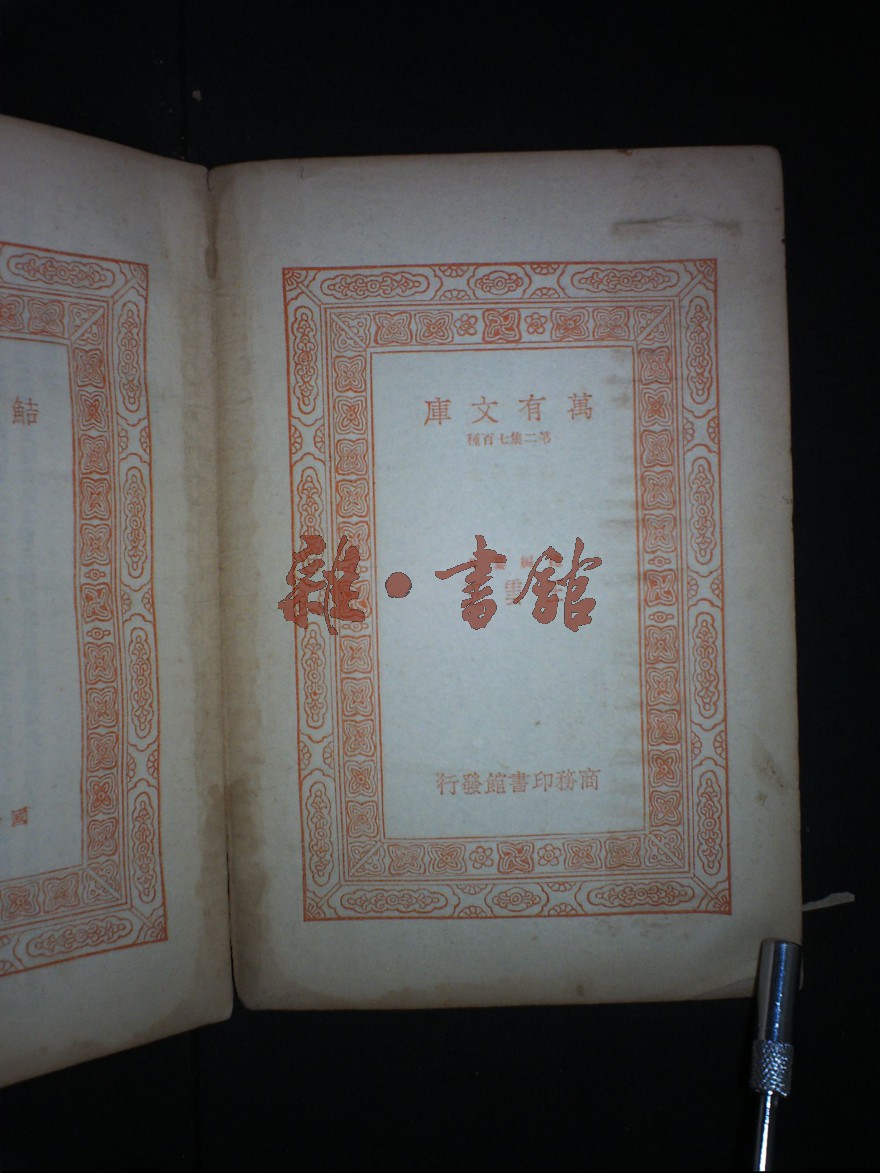 萬有文庫
第二集七百種
編
雲
雜·書館
商務印書館發行
鮚
國